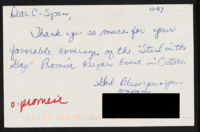 Dear C-Span, 10-97
Thank you so much for your
favorable coverage of the "Stand in the
Gap" Promise Keeper Event in October
God Bless you & your
o-promise